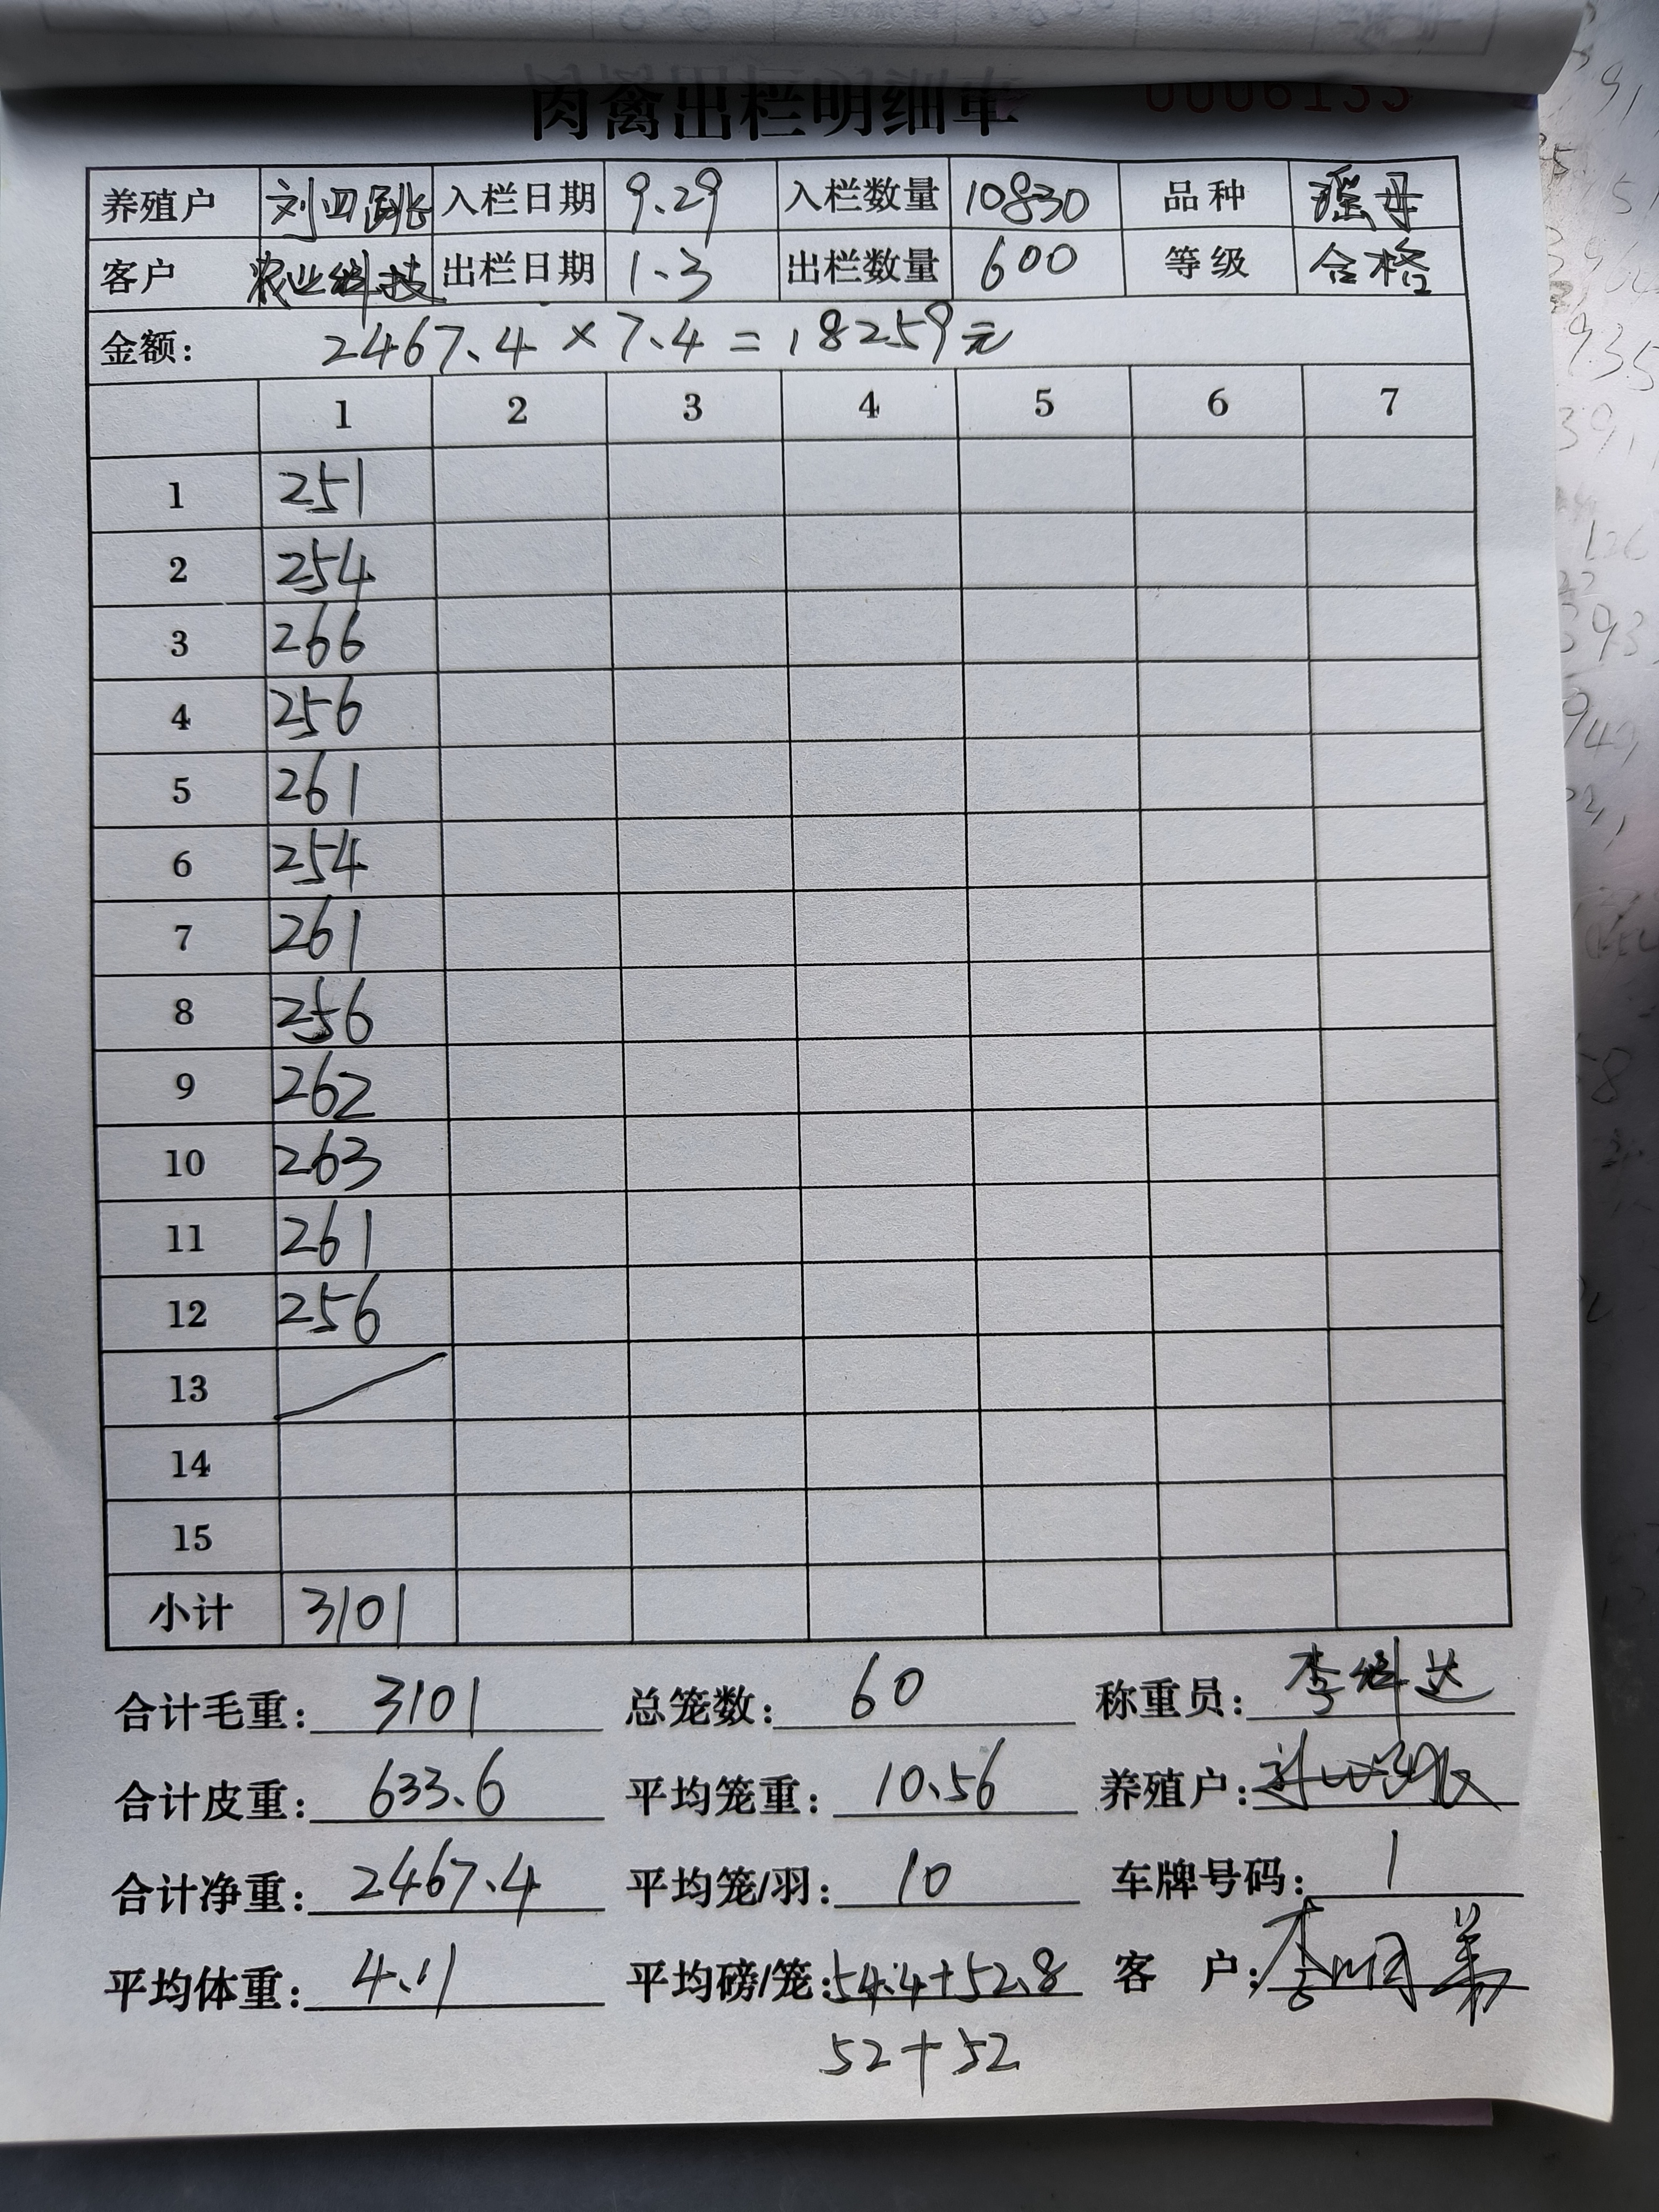 肉禽出栏明细单 0006133
养殖户 刘四跳 入栏日期 9.29 入栏数量 10830 品种 瑶母
客户 农业科技 出栏日期 1.3 出栏数量 600 等级 合格
金额: 2467.4 × 7.4 = 18259元
1 2 3 4 5 6 7
1 251
2 254
3 266
4 256
5 261
6 254
7 261
8 256
9 262
10 263
11 261
12 256
13
14
15
小计 3101
合计毛重: 3101 总笼数: 60 称重员: 李科达
合计皮重: 633.6 平均笼重: 10.56 养殖户:
合计净重: 2467.4 平均笼/羽: 10 车牌号码: 1
平均体重: 4.11 平均磅/笼: 54.4+52.8 客 户:
52+52